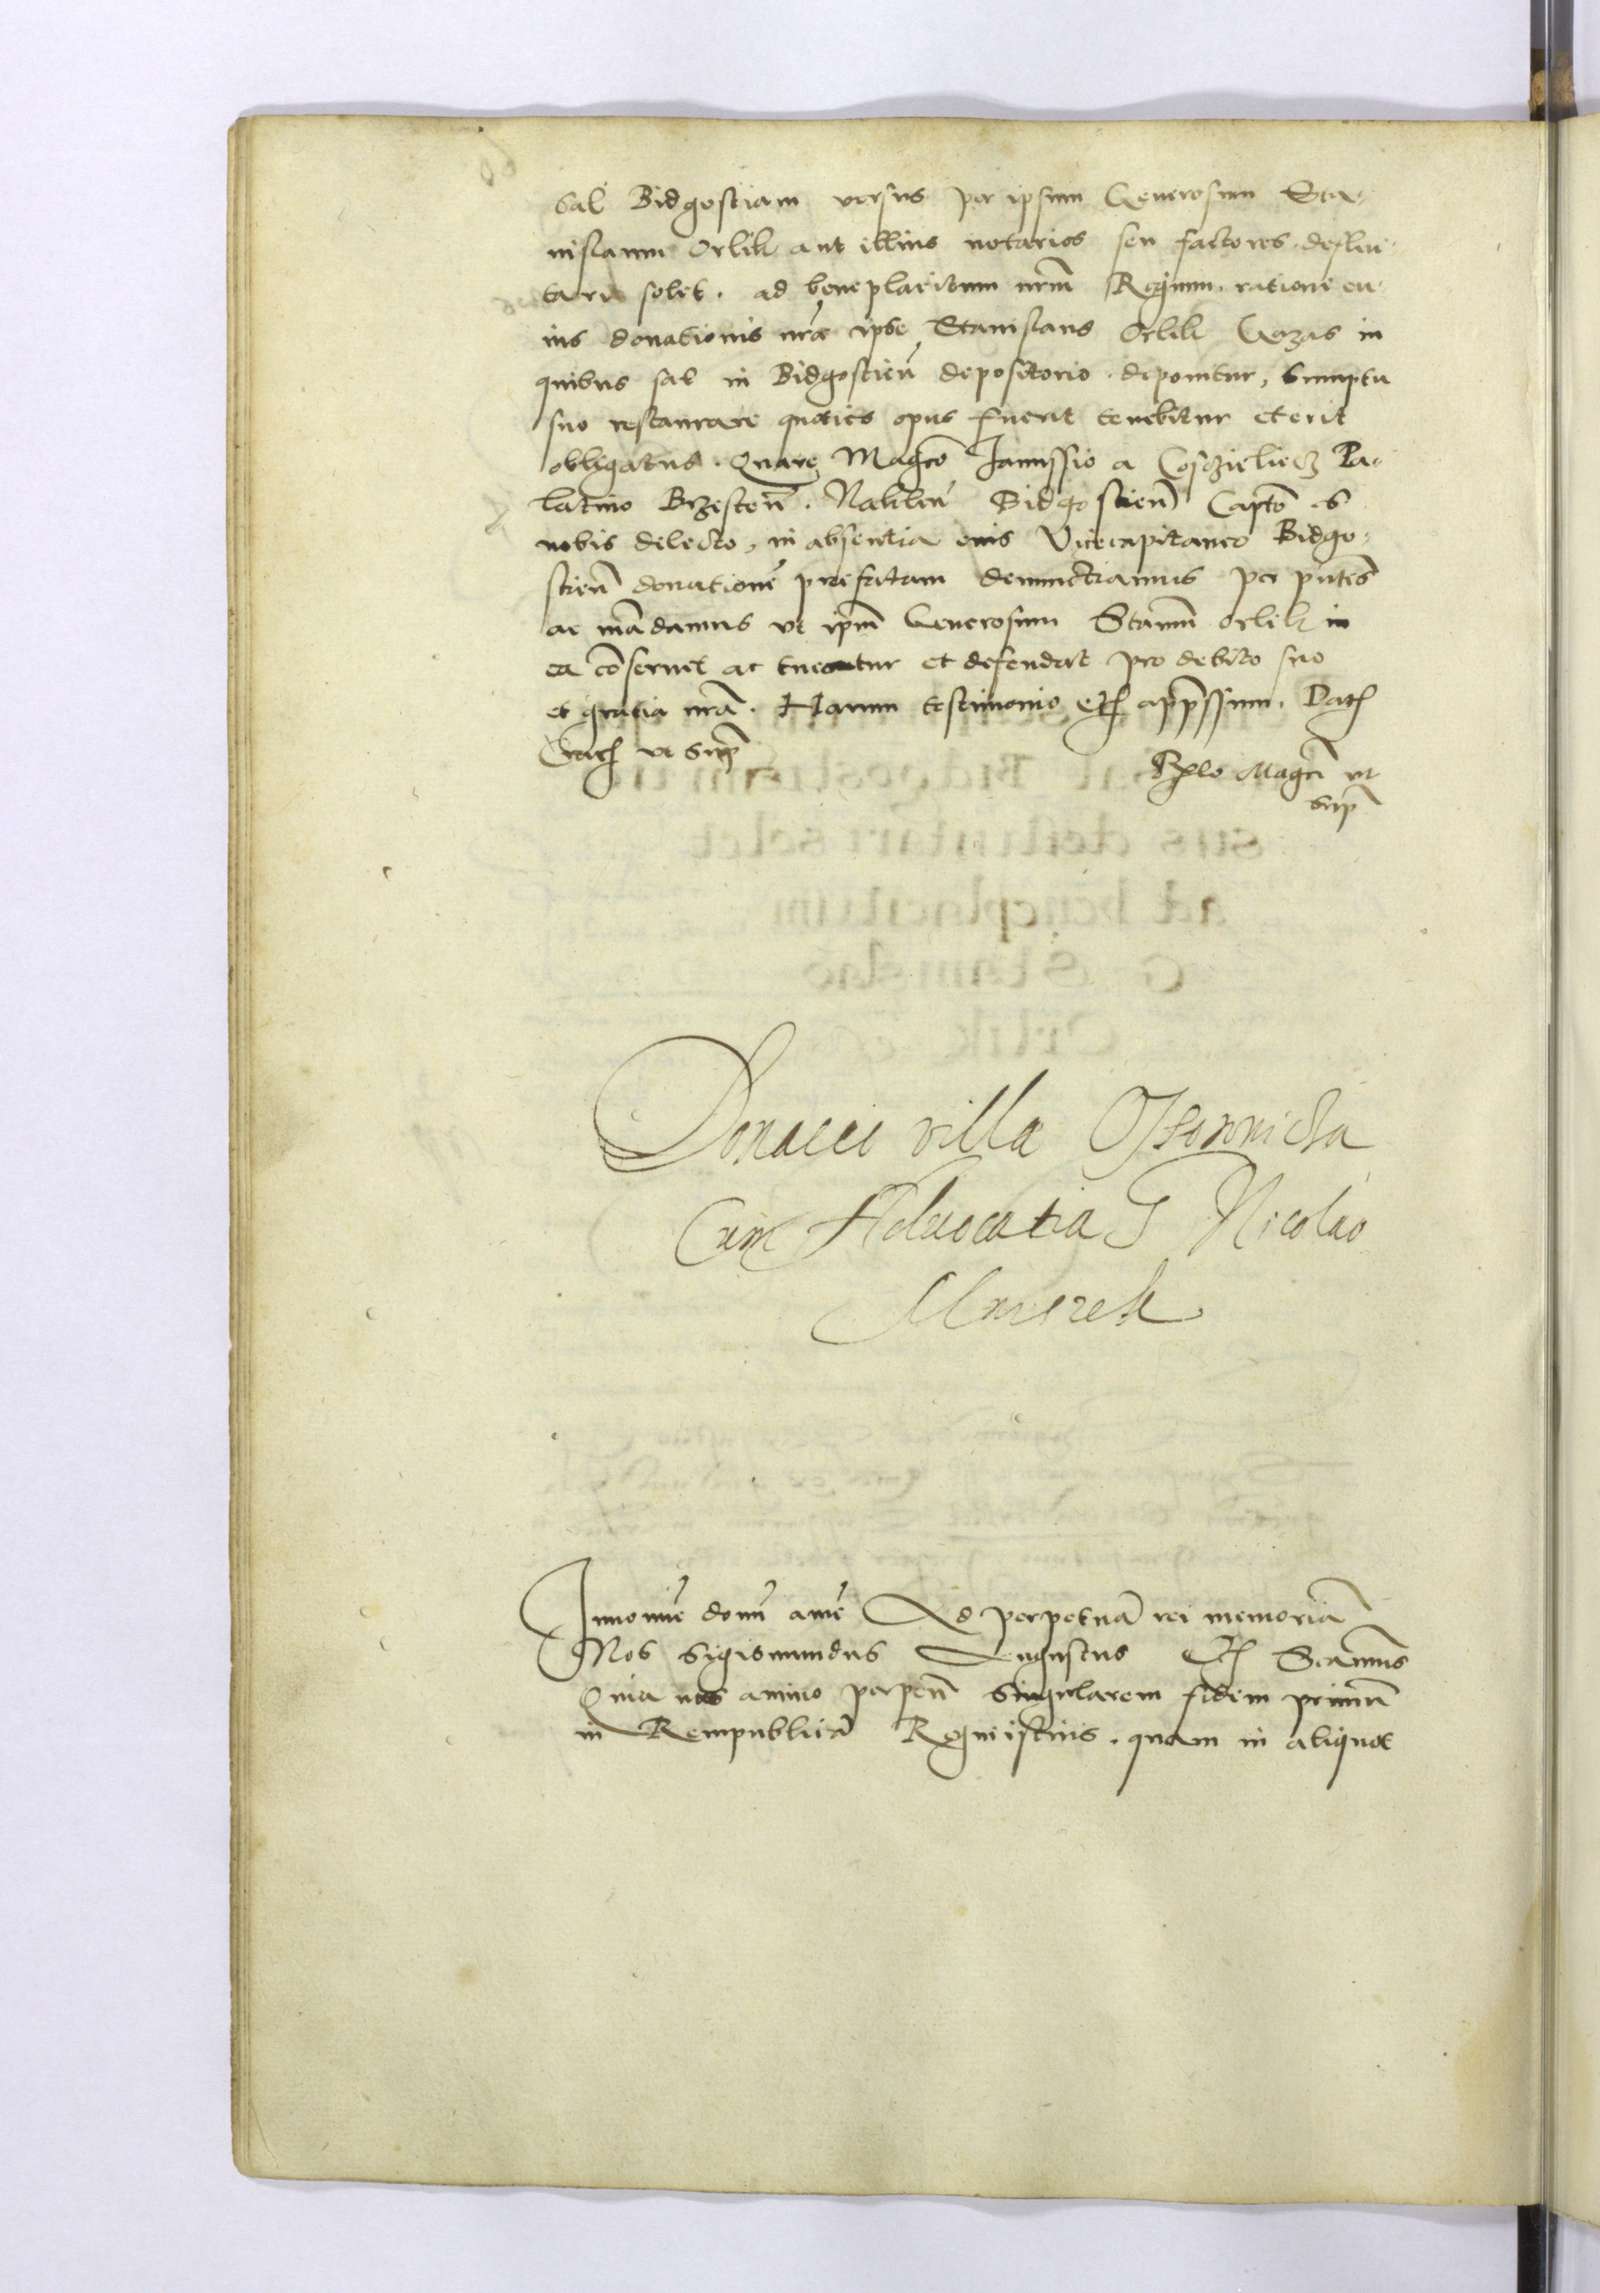 Sal Bidgostiam versus per ipsum Generosum Sta-
nislaum Orlik aut illius notarios seu factores deflui-
tari solet. ad beneplacitum nrm̃ Regium. ratione cu-
ius donationis nrae ipse Stanislaus Orlik Gozas in
quibus sal in Bidgostien̄ depositorio deponitur, sumptu
suo restaurare quoties opus fuerit tenebitur et erit
obligatus. Quare Magco Janussio a Cosczieliecz Pa-
latino Brzesten̄. Naklen̄ Bidgostien̄ Capto
nobis delecto, in absentia eius Vicecapitaneo Bidgo-
stien̄ donationē prefatam denunctiamus per pntes
ac mādamus vt ipm̄ Generosum Stanm̄ Orlik in
ea cōseruet ac tueatur et defendat pro debito suo
et gratia nrā. Harum testimonio etc appressum. Dat
Crac vt supr
Rlo Magci vt
supr
Donacio villæ
Cum Advocatia G Nicolao
In nomie domi amē Ad perpetuā rei memoriā
Nos Sigismundus Augustus etc
Quia nos animo perpen̄ singularem fidem primū
in Rempublicā Regni istius. quam in aliquot